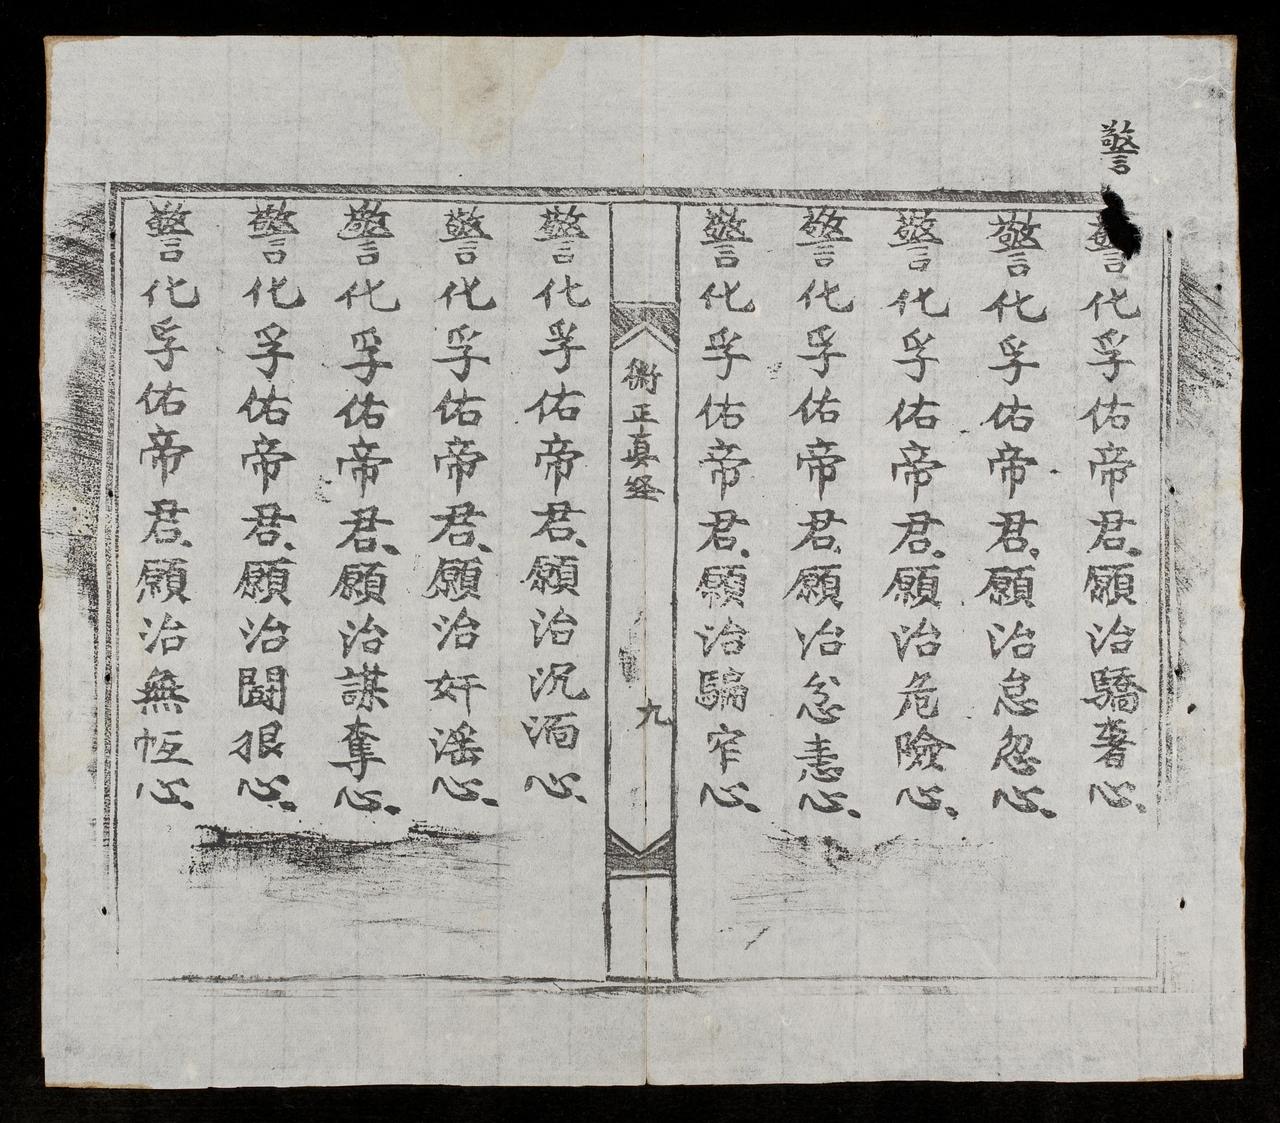 警
警化孚佑帝君、願治驕著心、
警化孚佑帝君、願治怠忽心、
警化孚佑帝君、願治危險心、
警化孚佑帝君、願治忿恚心、
警化孚佑帝君、願治騙窄心、
衛正真経
九
警化孚佑帝君、願治沉湎心、
警化孚佑帝君、願治奸滛心、
警化孚佑帝君、願治謀奪心、
警化孚佑帝君、願治鬪狠心、
警化孚佑帝君、願治無恆心、